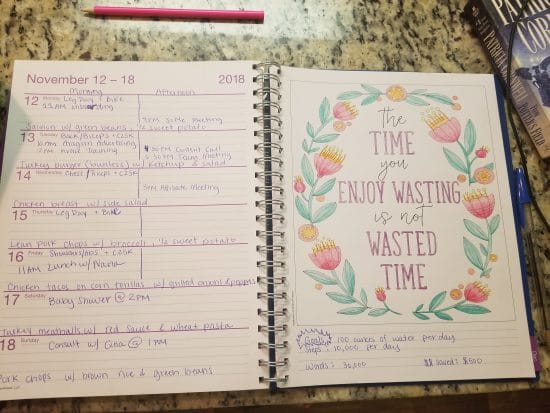 November 12 - 18 2018
Morning Afternoon
12 Monday Leg Day + Bike
11AM
7PM Meeting
Salmon w/ green beans & sweet potato
13 Tuesday Back/Biceps + C25K
advertising
4:30 PM Current Call
5:30 PM Team Meeting
2PM training
Turkey burger (bunless) w/ ketchup & salad
14 Wednesday Chest/Triceps + C25K
5PM Meeting
Chicken breast w/ side salad
15 Thursday Leg Day + Bike
Lean pork chops w/ broccoli, 1/2 sweet potato
16 Friday Shoulders/Abs + C25K
11AM Lunch w/ Nana
Chicken tacos on corn tortillas w/ grilled onions & peppers
17 Saturday Baby Shower @ 2PM
Turkey meatballs w/ red sauce & wheat pasta
18 Sunday Consult w/ @ 1PM
Pork chops w/ brown rice & green beans
the
TIME
you
ENJOY WASTING
is not
WASTED
TIME
Goals: 100 ounces of water per day
Steps: 10,000 per day
Words: $$ saved: $500
PATRICIA